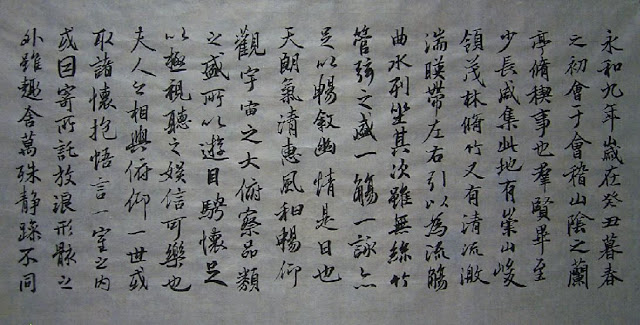 永和九年歲在癸丑暮春
之初會于會稽山陰之蘭
亭脩稧事也羣賢畢至
少長咸集此地有崇山峻
領茂林脩竹又有清流激
湍暎帶左右引以為流觴
曲水列坐其次雖無絲竹
管弦之盛一觴一詠亦
足以暢敘幽情是日也
天朗氣清惠風和暢仰
觀宇宙之大俯察品類
之盛所以遊目騁懷足
以極視聽之娛信可樂也
夫人之相與俯仰一世或
取諸懷抱悟言一室之內
或因寄所託放浪形骸之
外雖趣舍萬殊靜躁不同